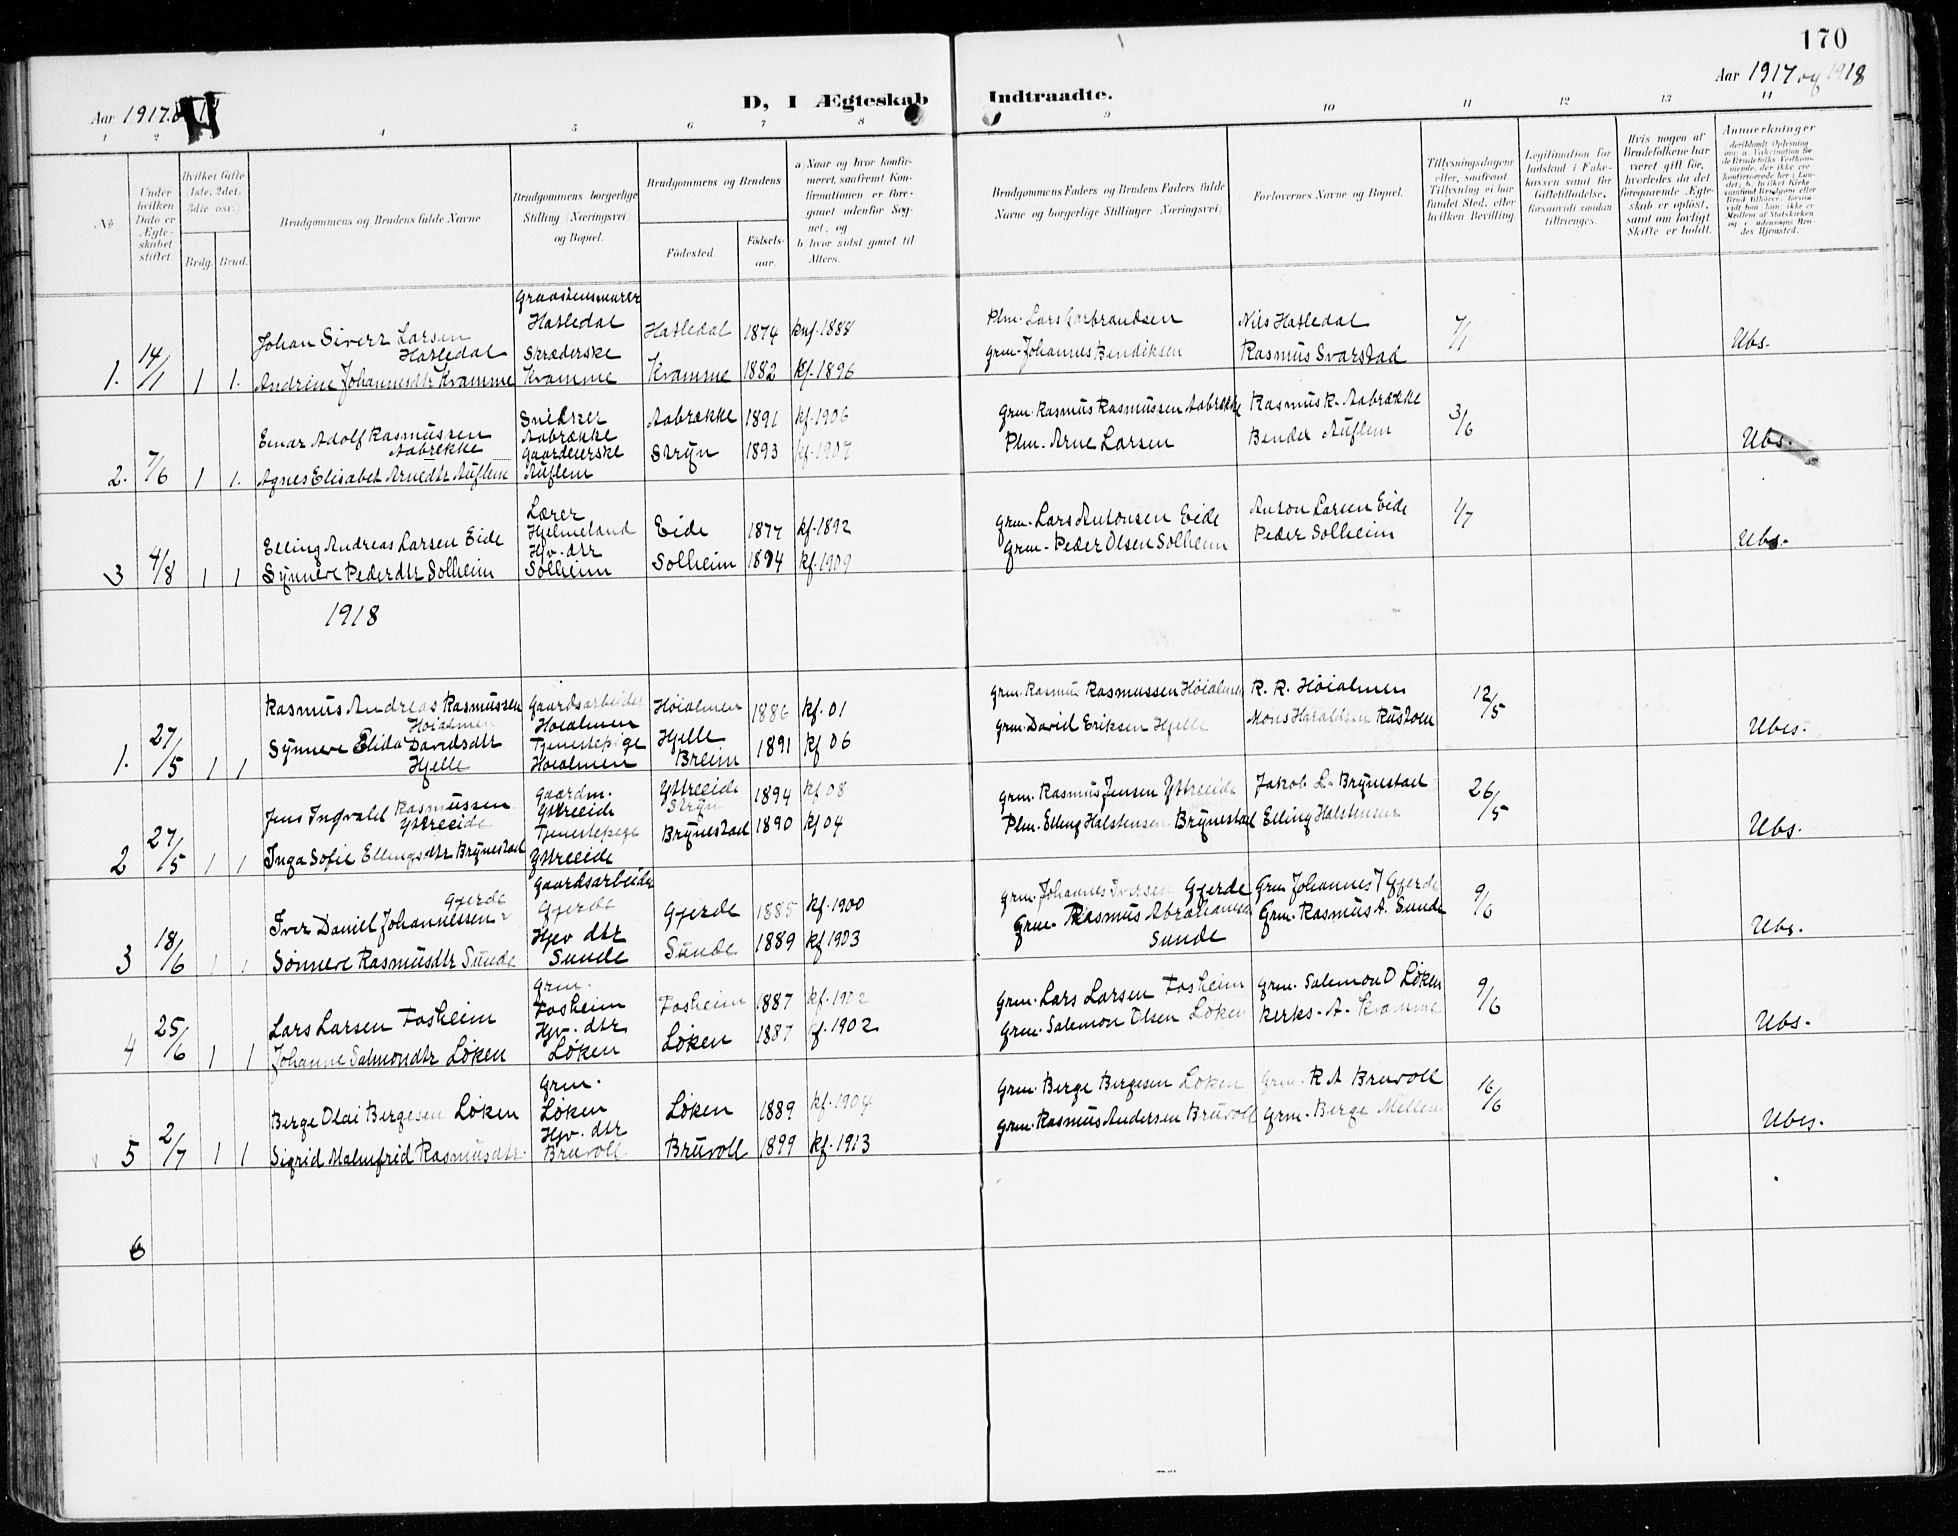 170
Aar 1917
Aar 1917 og 1918
D, I Ægteskab Indtraadte.
1 2 4 5 6 7 8 9 10 11 12 13 14
No
Under hvilken Dato er Ægteskabet stiftet
Hvilket Gifte 1ste, 2det, 3die osv.
Brdg. Brud.
Brudgommens og Brudens fulde Navne
Brudgommens borgerlige Stilling (Næringsvei) og Bopæl.
Brudgommens og Brudens
Födested.
Födselsaar.
a) Naar og hvor konfirmeret, saafremt Konfirmationen er foregaaet udenfor Sognet, og
b. hvor sidst gaaet til Alters.
Brudgommens Faders og Brudens Faders fulde Navne og borgerlige Stillinger (Næringsvei)
Forlovernes Navne og Bopæl.
Tillysningsdagen eller, saafremt Tillysning ei har fundet Sted, efter hvilken Bevilling.
Legitimation for Indskud i Enkekassen samt for Giftetilladelse, forsaavidt saadan tiltrænges.
Hvis nogen af Brudefolkene har været gift för, hvorledes da det foregaaende Ægteskab er oplöst, samt om lovligt Skifte er holdt.
Anmerkninger
1. 14/1 1 1. Johan Siverz Larsen Hatledal
Andrine Johannesdtr Kramme
Graastensmurer Hatledal
Skræderske Kramme
Hatledal 1874 knf. 1888
Kramme 1882 kf. 1896
Plm. Lars Garbrandsen
Grm. Johannes Bendiksen
Nils Hatledal
Rasmus Svarstad
7/1
Ubs.
2. 7/6 1 1. Einar Adolf Rasmussen Aabrekke
Agnes Elisabet Arnedtr Auflem
Snedker Aabrække
Gaardeierske Auflem
Aabrække 1891 kf. 1906
Stryn 1893 kf. 1907
Grm. Rasmus Rasmussen Aabrekke
Plm. Arne Larsen
Rasmus R. Aabrække
Bender Auflem
3/6
Ubs.
3 4/8 1 1 Elling Andreas Larsen Eide
Synneve Pederdtr Solheim
Lærer Hjelmeland
Hjv. dtr Solheim
Eide 1877 kf. 1892
Solheim 1894 kf. 1909
Grm. Lars Antonsen Eide
Grm. Peder Olsen Solheim
Anton Larsen Eide
Peder Solheim
1/7
Ubs.
1918
1. 27/5 1 1 Rasmus Andreas Rasmussen Høialmen
Synneve Elida Davidsdtr Hjelle
Gaardsarbeider Høialmen
Tjenestepige Høialmen
Høialmen 1886 kf. 01
Hjelle Breim 1891 kf 06
Grm. Rasmus Rasmussen Høialmen
Grm. David Eriksen Hjelle
R. R. Høialmen
Mons Haraldsen Rustøen
12/5
Ubes.
2 27/5 1 1 Jens Ingvald Rasmussen Ytreeide
Inga Sofie Ellingsdtr Brynestad
Gaardm. Ytreeide
Tjenestepige Ytreeide
Ytreeide Stryn 1894 kf 08
Brynestad 1890 kf 04
Grm. Rasmus Jensen Ytreeide
Plm. Elling Halstensen Brynestad
Jakob L. Brynestad
Elling Halstensen
26/5
Ubs.
3 18/6 1 1 Iver Daniel Johannessen Gjerde
Sønneve Rasmusdtr Sunde
Gaardsarbeider Gjerde
Hjev dtr Sunde
Gjerde 1885 kf. 1900
Sunde 1889 kf 1903
Grm. Johannes Iversen Gjerde
Grm. Rasmus Abrahamsen Sunde
Grm Johannes I Gjerde
Grm. Rasmus A. Sunde
9/6
Ubs.
4 25/6 1 1 Lars Larsen Fosheim
Johanne Salmondtr Løken
Grm. Fosheim
Hjv. dtr Løken
Fosheim 1887 kf. 1902
Løken 1887 kf. 1902
Grm. Lars Larsen Fosheim
Grm. Salemon Olsen Løken
Grm. Salemon O Løken
Kerks. A. Kramme
9/6
Ubs.
5 2/7 1 1 Berge Olai Bergesen Løken
Sigrid Malmfrid Rasmusdtr.
Grm. Løken
Hjv. dtr Bruvoll
Løken 1889 kf. 1904
Bruvoll 1899 kf. 1913
Grm. Berge Bergesen Løken
Grm. Rasmus Andersen Bruvoll
Grm. R A Bruvoll
Grm. Berge Mellem
16/6
Ubes.
6